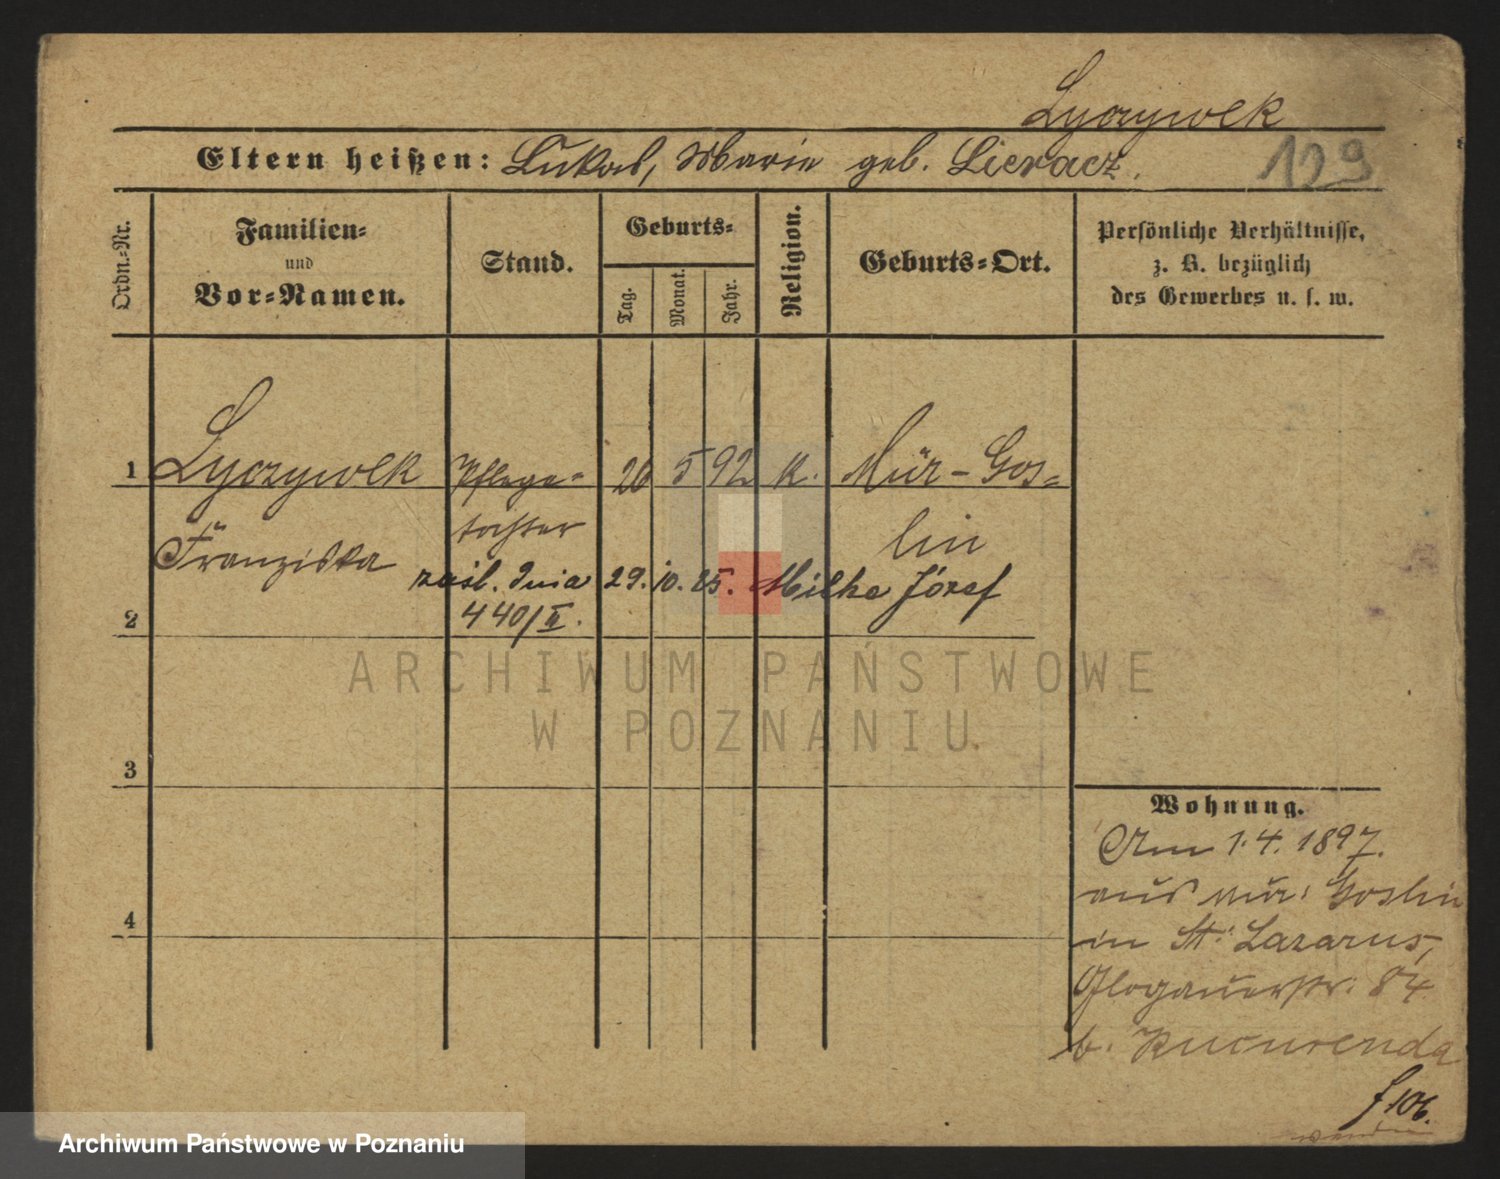 Lyczywek
Eltern heißen: Lukas, Marie geb. Lieracz.
129
Ordn.-Nr.
Familien-
und
Vor-Namen.
Stand.
Geburts-
Tag.
Monat.
Jahr.
Religion.
Geburts-Ort.
Persönliche Verhältnisse,
z. B. bezüglich
des Gewerbes u. s. w.
1 Lyczywek Pflege- 26 5 92 k. Mur-Gos-
Franziska tochter lin
zaśl. dnia 29. 10. 25. Milke Józef
2 440/II.
ARCHIWUM PAŃSTWOWE
W POZNANIU
3
Wohnung.
Am 1.4.1897.
aus Mur: Goslin
4
in St. Lazarus,
Glogauerstr. 84
b. Kucurenda
f 106.
Archiwum Państwowe w Poznaniu